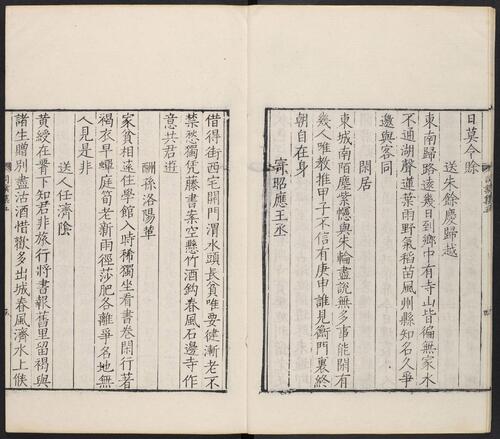 日莫令賒
送朱餘慶歸越
東南歸路遠幾日到鄉中有寺山皆徧無家水
不通湖聲蓮葉雨野氣稻苗風州縣知名久爭
邊與客同
閑居
東城南陌塵紫幰與朱輪盡說無多事能閑有
幾人唯教推甲子不信有庚申誰見衡門裏終
朝自在身
寄昭應王丞
借得街西宅開門渭水頭長貧唯要健漸老不
禁愁獨凭藤書案空懸竹酒鈎春風石邊寺作
意共君遊
酬孫洛陽華
家貧相遠住學館入時稀獨坐看書卷閑行著
褐衣早蟬庭筍老新雨徑莎肥各離爭名地無
人見是非
送人任濟陰
黃綬在腰下知君非旅行將書報舊里留褐與
諸生贈別盡沽酒惜歡多出城春風濟水上候